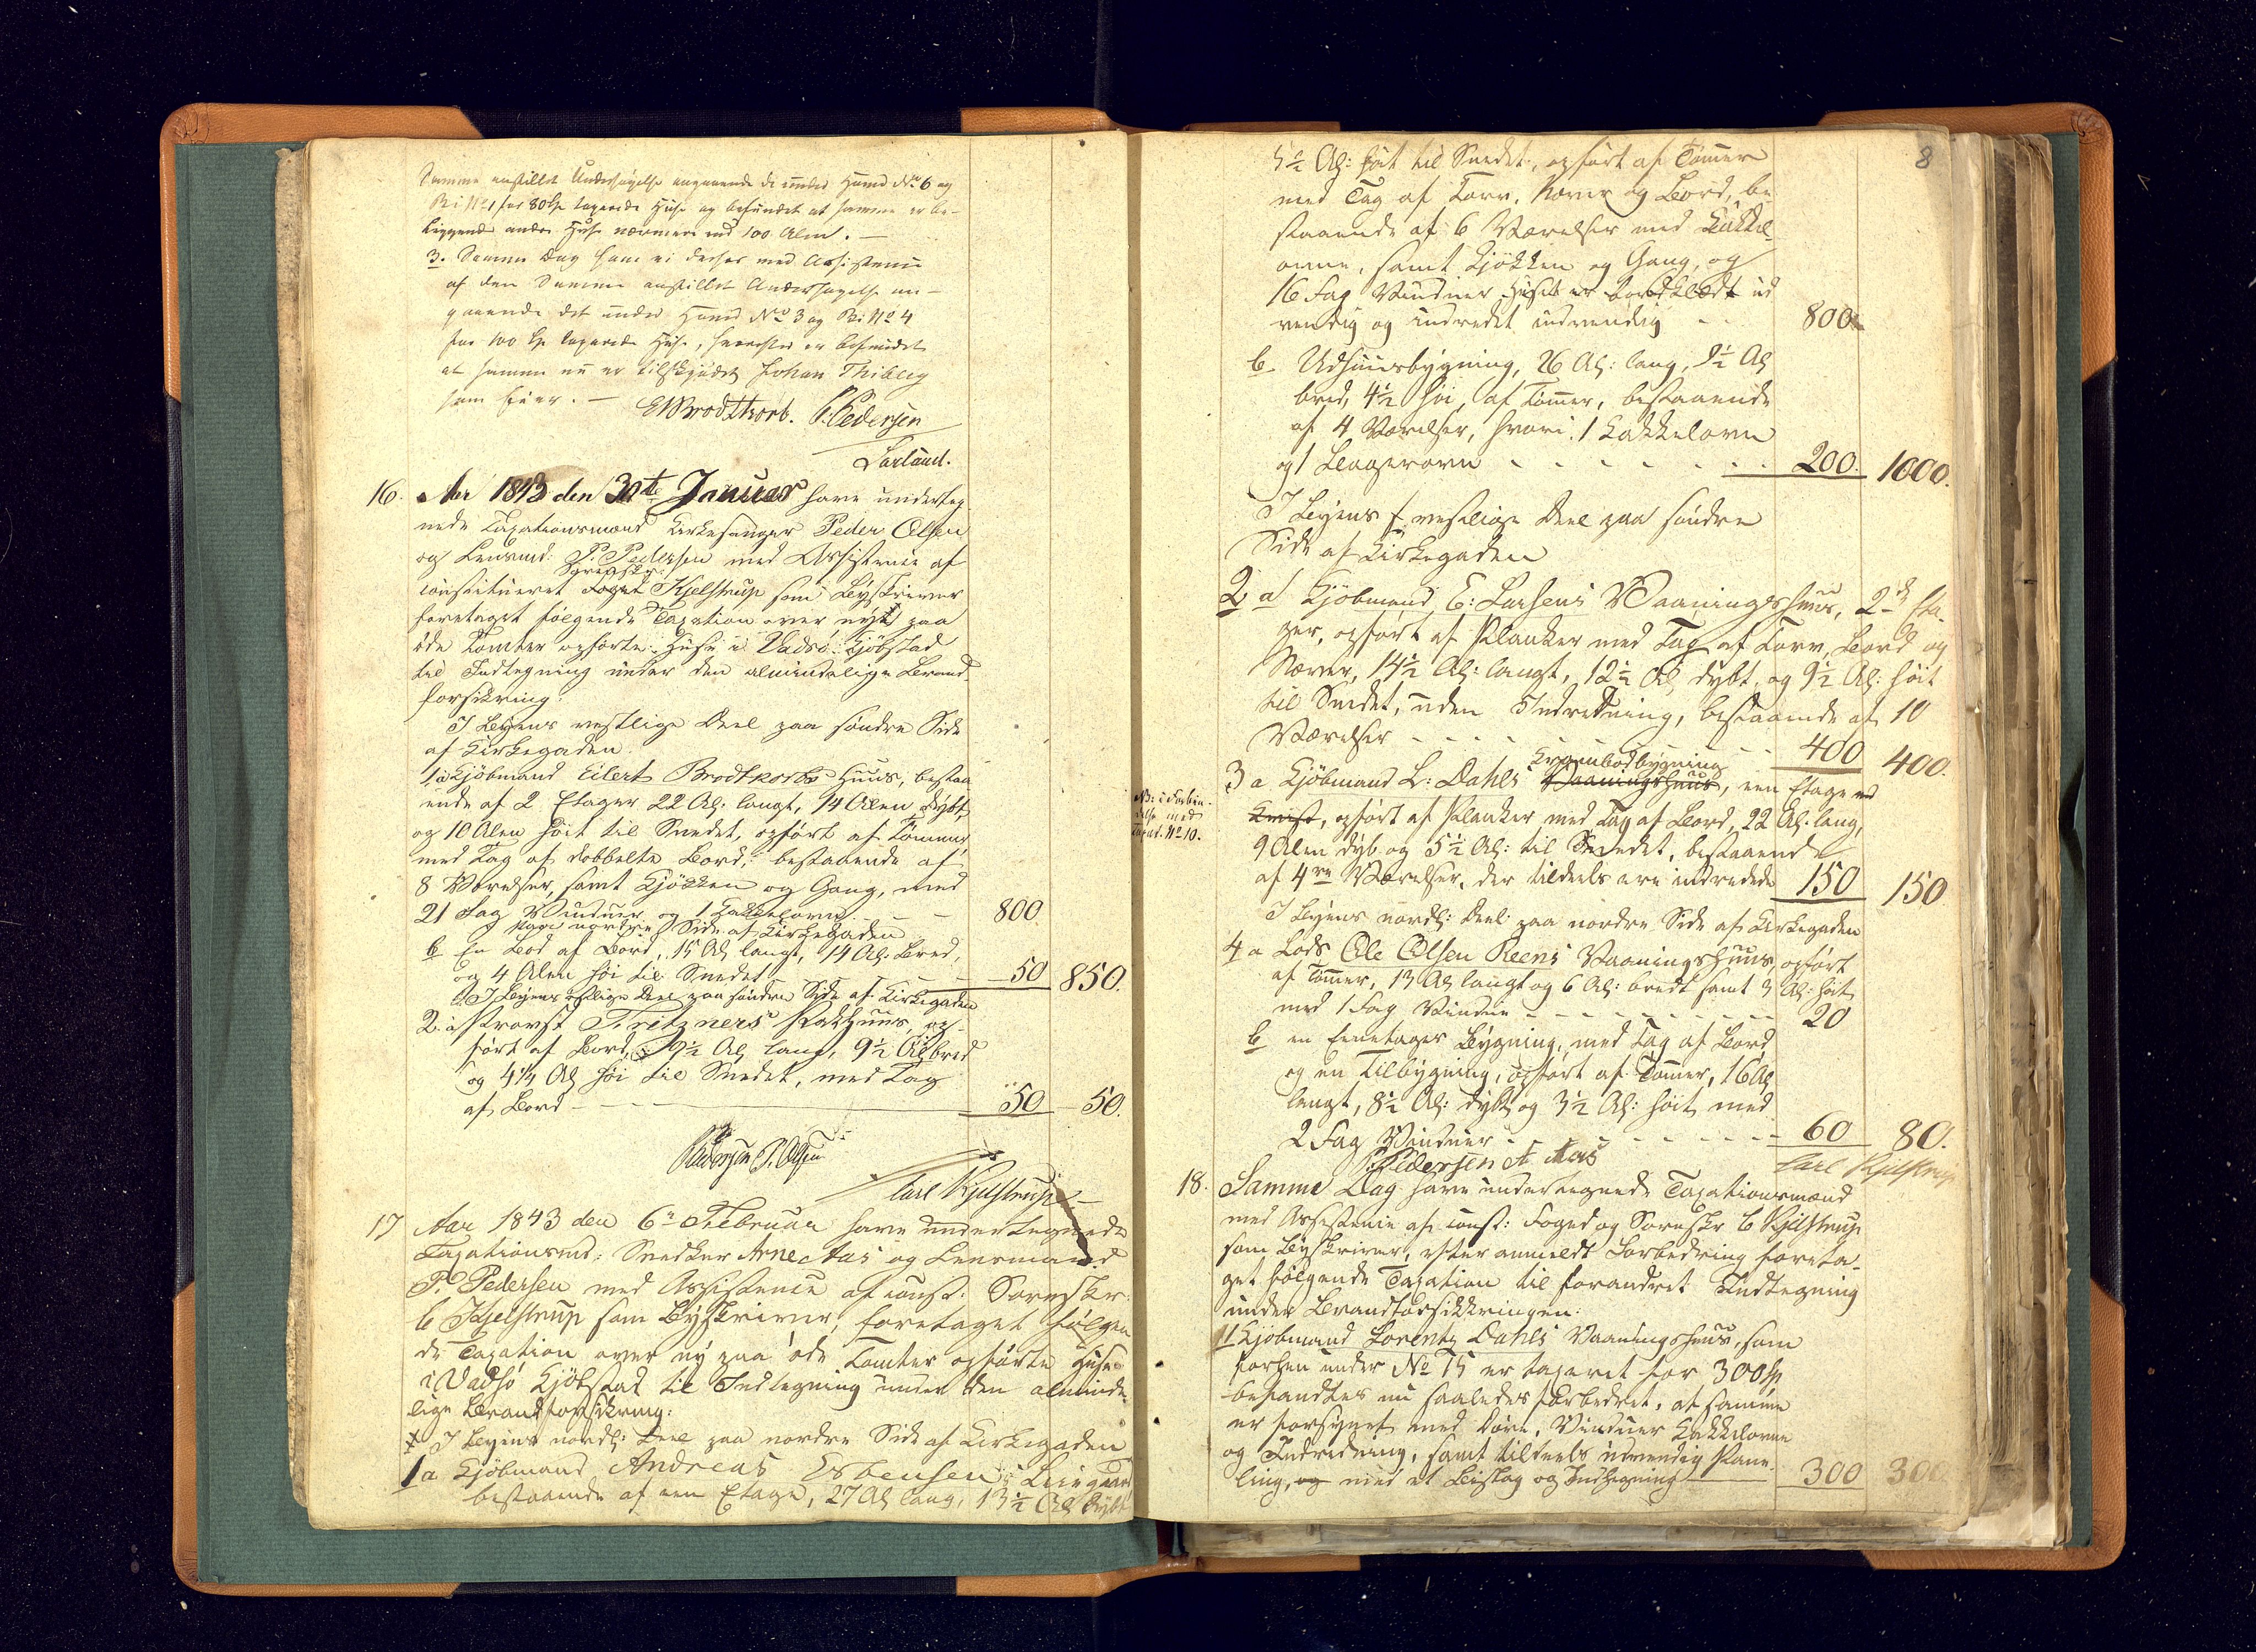 Samme anstillet Undersøgelse angaaende de under Hums No 6 og
Bi No 1 for 80 Sp taxerede Huse og befundet at samme er be-
liggende andre Huse nærmere end 100 Alen. —
3. Samme Dag have vi derhos med Assistence
af den Samme anstillet Undersøgelse an-
gaaende det under Hums No 3 og Bi No 4
for 100 Sp taxerede Huse, hvorefter er befundet
at samme nu er tilskjødet Johan Thibley
som Eier. — E Brodtkorb. P. Pedersen
Sarlaud.
16. Aar 1843 den 30te Januar have underteg
nede Taxationsmænd Kirkesanger Peder Olsen
og Lensmd: P. Pedersen med Assistence af
Sorenskr:
constitueret Foged Kjelstrup som Byskriver
foretaget følgende Taxation over nyt paa
øde Tomter opførte Huse i Vadsø Kjøbstad
til Indtegning under den almindelige Brand
forsikring:
I Byens vestlige Deel paa søndre Side
af Kirkegaden
1 a Kjøbmand Eilert Brodtkorbs Huus, bestaa
ende af 2 Etager 22 Al: langt, 14 Alen dybt,
og 10 Alen høit til Sm‌edet, opført af Tømmer,
med Tag af dobbelte Bord, bestaaende af
8 Værelser, samt Kjøkken og Gang, med
21 Fag Vinduer og 1 Kakkelovn — — 800
Paa nordre Side af Kirkegaden
b En Bod af Bord, 15 Al langt, 14 Al: bred,
og 4 Alen høi til Snedet — 50 850.
I Byens vestlige Deel paa søndre Side af Kirkegaden
2. a Provst Fritzners Pakhuus, op-
ført af Bord, 9½ Al lang, 9½ Al bred
og 4¼ Al høi til Snedet, med Tag
af Bord — 50 50.
P. Pedersen P. Olsen
Carl Kjelstrup
17 Aar 1843 den 6te Februar have undertegnede
Taxationsmd: Snedker Arne Aas og Lensmand
P. Pedersen med Assistence af const. Sorenskr:
C Kjelstrup som Byskriver, foretaget følgen
de Taxation over ny paa øde Tomter opførte Huse
i Vadsø Kjøbstad til Indtegning under den alminde
lige Brandforsikring:
I Byens nordl: Deel paa nordre Side af Kirkegaden
1 a Kjøbmand Andreas Esbensen's
bestaaende af een Etage, 27 Al lang, 13½ Al dybt
8
5½ Al: høit til Snedet, opført af Tømmer
med Tag af Torv, Næver og Bord, be
staaende af 6 Værelser med Kakkel
ovne, samt Kjøkken og Gang, og
16 Fag Vinduer Huset er bordklædt ud
vendig og indredet indvendig - - 800
b Udhuusbygning, 26 Al: lang, 9½ Al
bred, 4½ høi, af Tømmer, bestaaende
af 4 Værelser, hvori 1 Kakkelovn
og 1 Bagerovn - - - - - - 200. 1000.
I Byens vestlige Deel paa søndre
Side af Kirkegaden
2 a Kjøbmand E: Larsens Vaaningshuus, 2de Eta-
ger, opført af Planker med Tag af Torv, Bord og
Næver, 14½ Al: langt, 12½ Al dybt, og 9½ Al: høit
til Snedet, uden Indredning, bestaaende af 10
Værelser - - - - 400 400.
Krambodbygning
3 a Kjøbmand L: Dahls Vaaningshuus, een Etage med
NB: i Forbin-
delse med
Taxat. No 10.
Kvist, opført af Planker med Tag af Bord, 22 Al. lang,
9 Alen dyb og 5½ Al: til Snedet, bestaaende
af 4re Værelser, der tildeels ere indredede 150 150
I Byens nordl: Deel paa nordre Side af Kirkegaden
4 a Lods Ole Olsen Reens Vaaningshuus, opført
af Tømmer, 13 Al langt og 6 Al: bredt samt 3 Al: høit
med 1 Fag Vindue - - - - 20
b en Eenetages Bygning, med Tag af Bord
og en Tilbygning, opført af Tømmer, 16 Al
langt, 8½ Al: dybt og 3½ Al: høit med
2 Fag Vinduer - - - - 60 80.
P. Pedersen A Aas Carl Kjelstrup
18. Samme Dag have undertegnede Taxationsmænd
med Assistence af const: Foged og Sorenskr C Kjelstrup
som Byskriver, efter anmeldt Forbedring foreta-
get følgende Taxation til forandret Indtegning
under Brandforsikkringen:
1 Kjøbmand Lorentz Dahls Vaaningshuus, som
forhen under No 15 er taxeret for 300 Sp
befandtes nu saaledes forbedret, at samme
er forsynet med Døre, Vinduer Kakkelovne
og Indredning, samt tildeels udvendig Pane-
ling, og med et Bislag og Indhegning 300 300